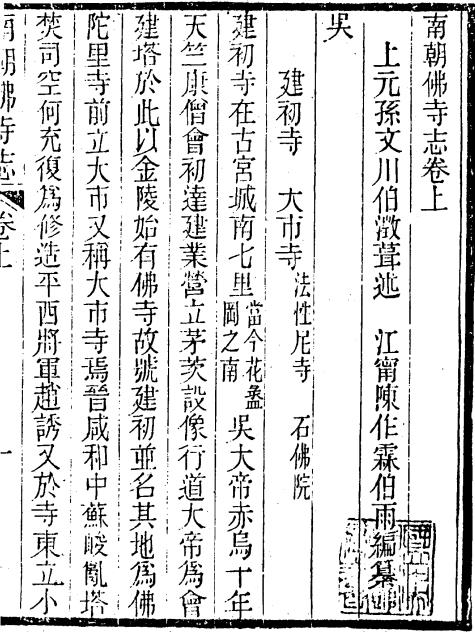 南朝佛寺志卷上
上元孫文川伯澂葺述 江甯陳作霖伯雨編纂
吳
建初寺 大市寺 法性尼寺 石佛院
建初寺在古宮城南七里當今花盝岡之南吳大帝赤烏十年
天竺康僧會初達建業營立茅茨設像行道大帝爲會
建塔於此以金陵始有佛寺故號建初並名其地爲佛
陀里寺前立大市又稱大市寺焉晉咸和中蘇峻亂塔
焚司空何充復爲修造平西將軍趙誘又於寺東立小
南朝佛寺志 卷上 一